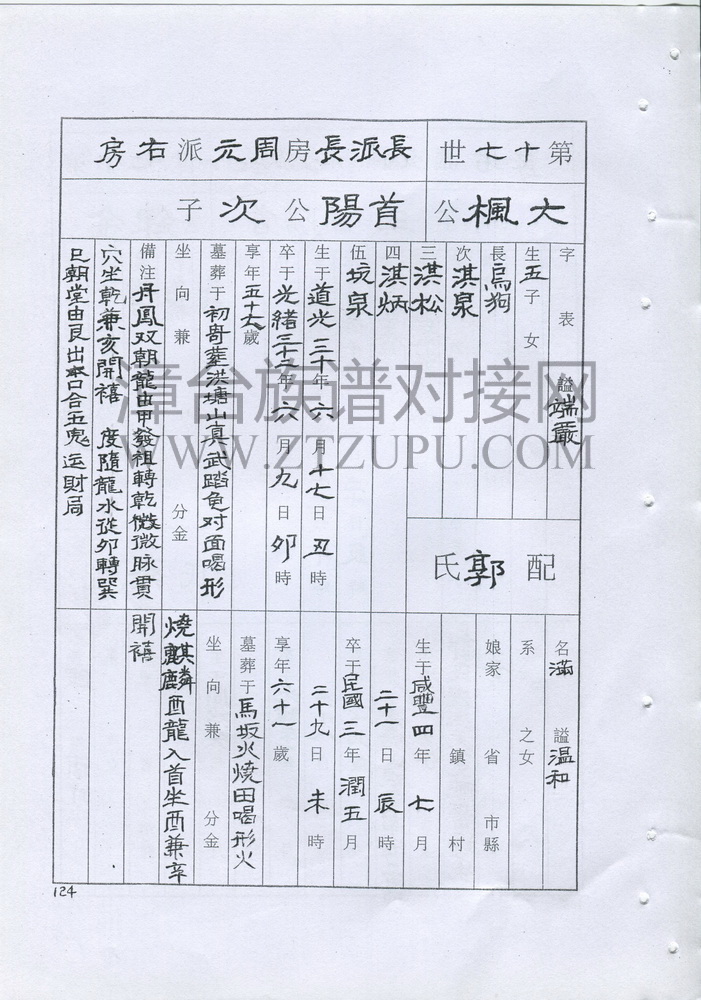 第十七世
長派長房周元派右房
大楓公
首陽公次子
字 表 諡端嚴
生五子女
長烏狗
次淇泉
三淇松
四淇炳
伍坟泉
生于道光三十年六月十七日丑時
卒于光緒三十二年六月九日卯時
享年五十七歲
墓葬于初寄葬洪塘山真武踏龟对面喝形
坐向兼 分金
備注丹鳳双朝龍由甲發祖轉乾微微脉貫
穴坐乾兼亥開禧 度隨龍水從卯轉巽
巳朝堂由艮出本口合五鬼运財局
配郭氏
名滿 諡温和
系 之女
娘家 省 市縣
鎮 村
生于咸豐四年七月
二十一日辰時
卒于民國三年潤五月
二十九日未時
享年六十一歲
墓葬于馬坂火燒田喝形火
坐向兼 分金
燒麒麟酉龍入首坐酉兼辛
開禧
124
漳台族谱对接网
WWW.ZTZUPU.COM